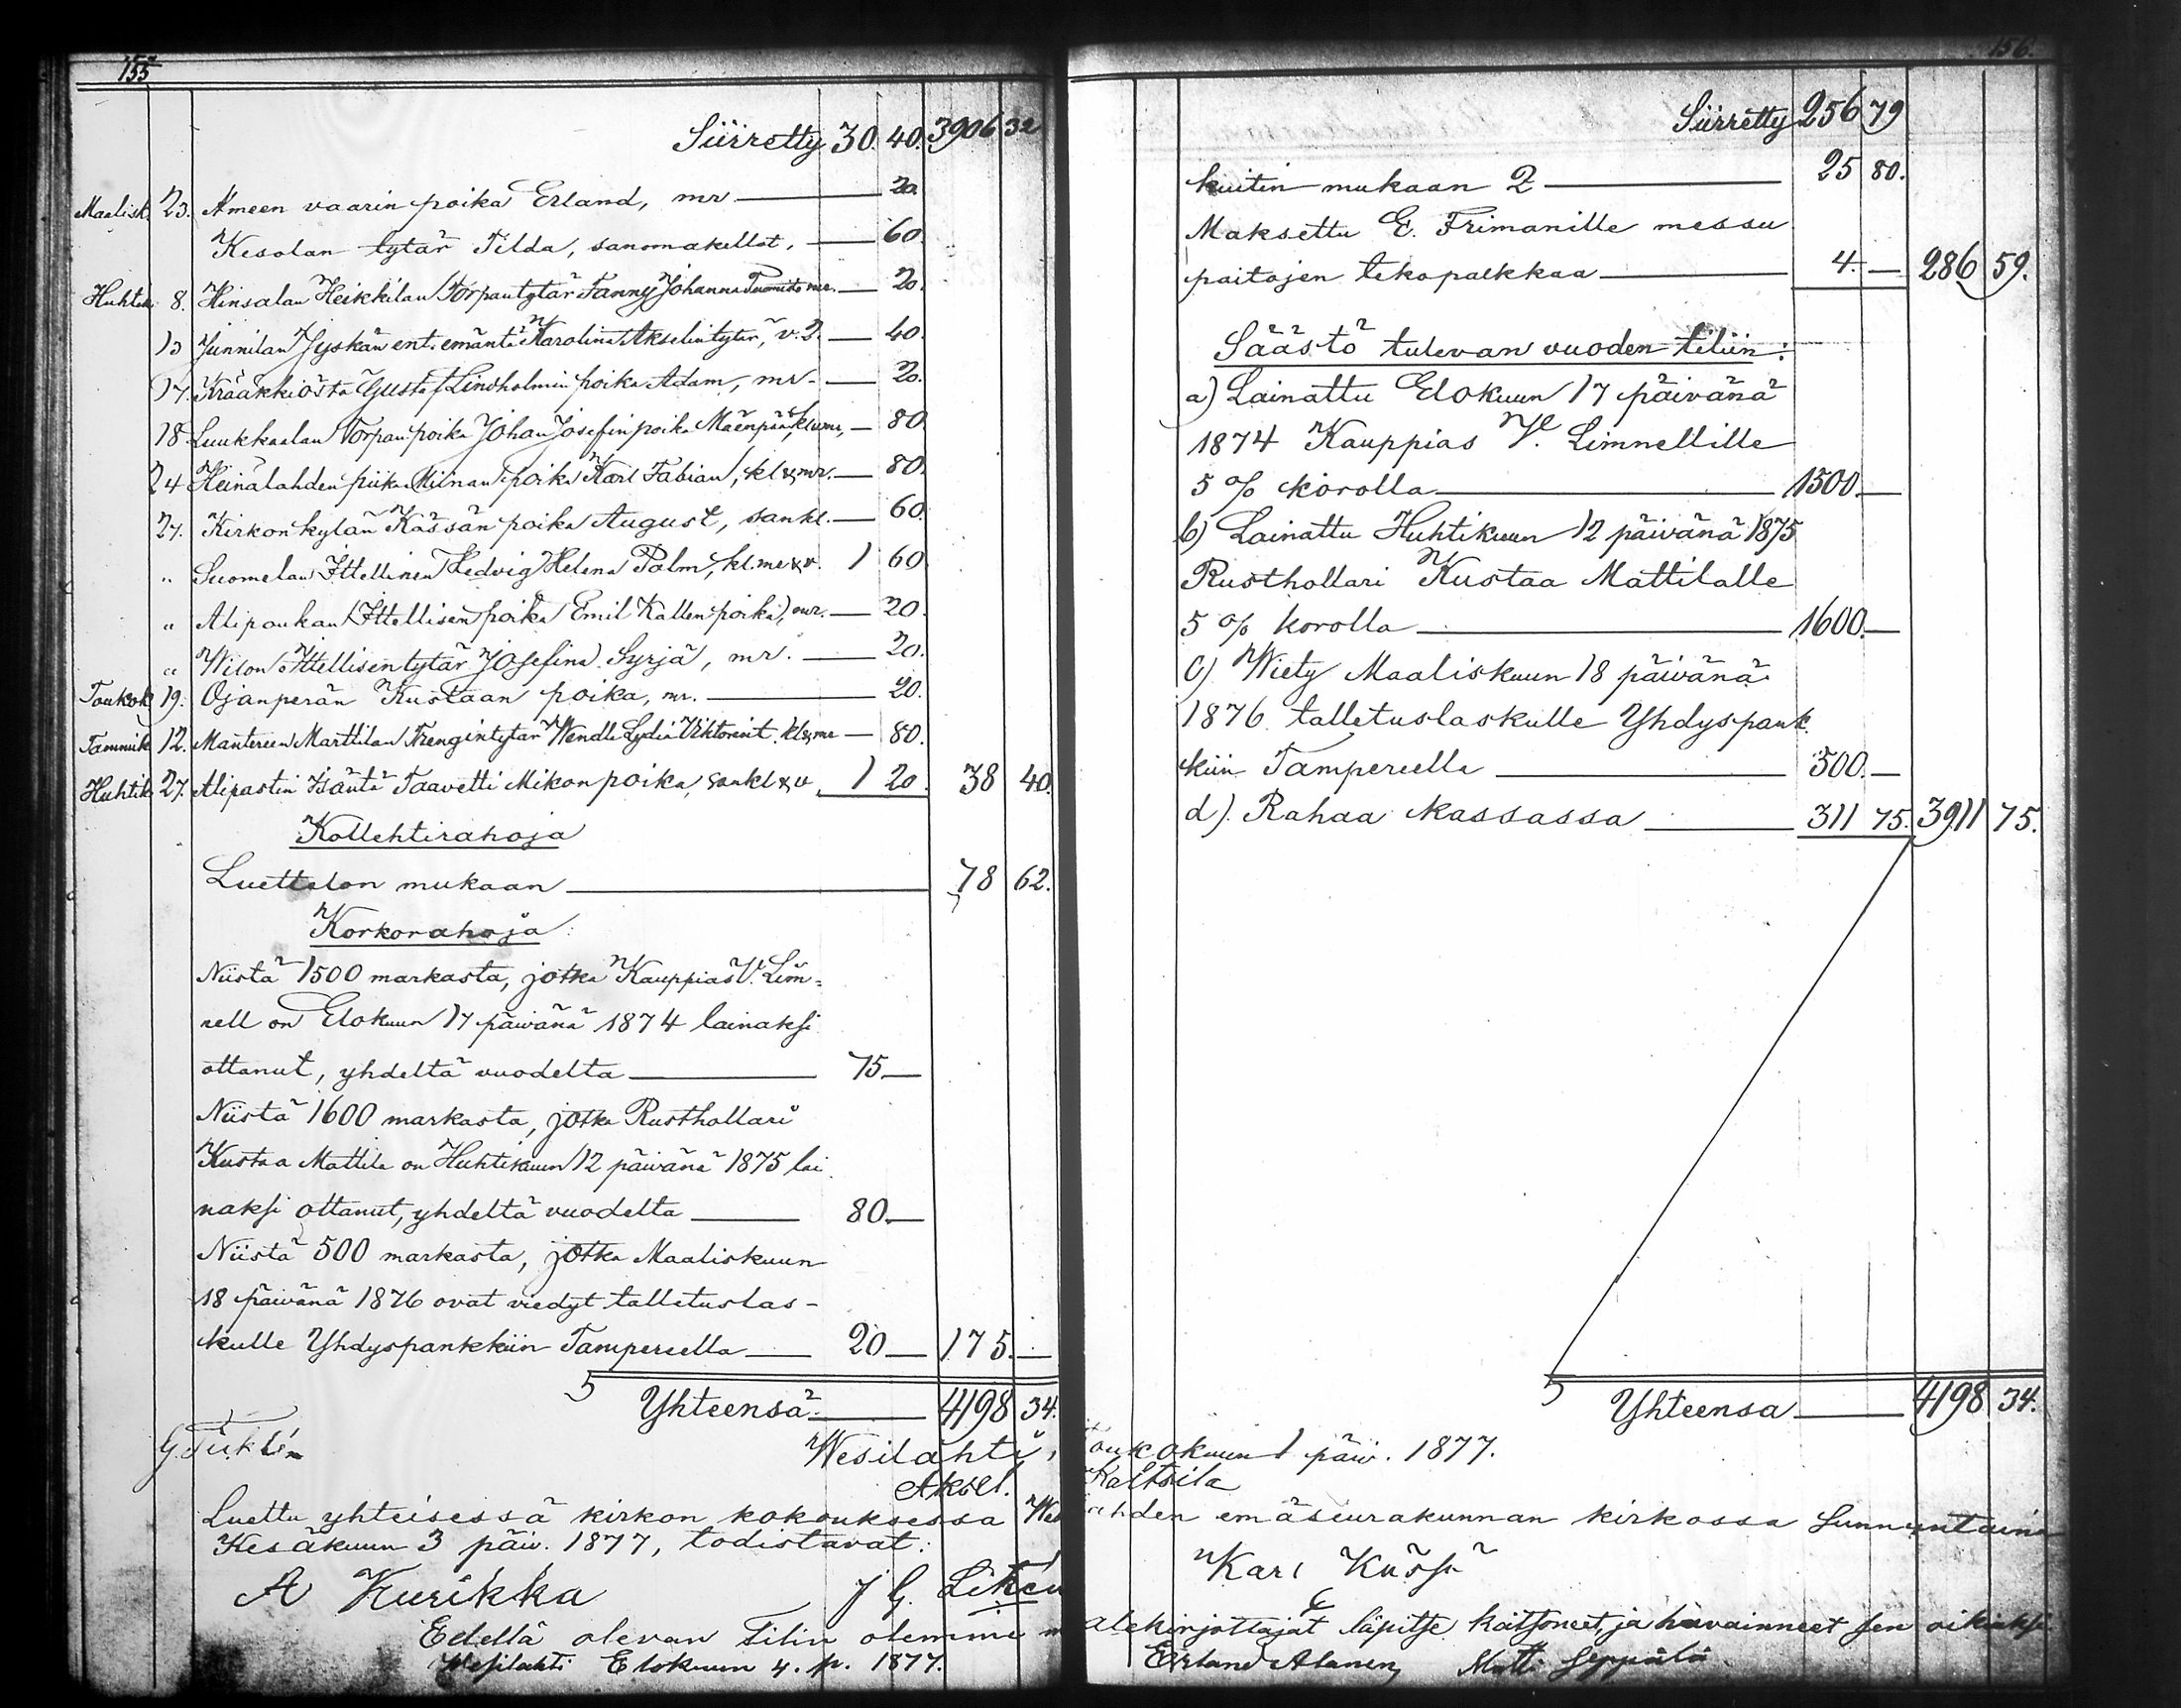 155
Siirretty 30. 40. 3906 32
Maalisk. 23. Ameen vaarin poika Erland, mr — 20.
Kesolan tytär Tilda, sanomakellot, — 60.
Huhtik 8. Hinsalan Heikkilän Torpantytär Fanny Johanna mr. — 20.
13 Junnilan Jyskän ent. emäntä Karolina Akselintytär, v. 2. — 40.
17. Krääkkiöstä Gustaf Lindholmin poika Adam, mr. — 20.
18. Luukkaalan Torpan poika Johan Josefin poika Mäenpää, kl & mr, — 80
24 Heinälahden piika Miinan poika Karl Fabian, kl & mr. — 80.
27. Kirkonkylän Kässän poika August, sankl. — 60.
„ Suomelan Ittellinen Hedvig Helena Palm, kl. mr & v. 1 60
„ Alipoukan Ittellisen poika Emil Kallen poika, mr. — 20.
„ Wilon Ittellisen tytär Josefina Syrjä, mr. — 20.
Toukok. 19. Ojanperän Kustaan poika, mr. — 20.
Tammik. 12. Mantereen Marttilan Trengintytär Wendla Lydia Viktorint. kl & mr — 80.
Huhtik. 27. Alipastin Isäntä Taavetti Mikonpoika, sankl & v, 1 20. 38 40.
Kollehtirahoja
Luettelon mukaan — 78 62.
Korkorahoja
Niistä 1500 markasta, jotka Kauppias V. Lim=
nell on Elokuun 17 päivänä 1874 lainaksi
ottanut, yhdeltä vuodelta — 75 —
Niistä 1600 markasta, jotka Rusthollari
Kustaa Mattila on Huhtikuun 12 päivänä 1875 lai
naksi ottanut, yhdeltä vuodelta — 80. —
Niistä 500 markasta, jotka Maaliskuun
18 päivänä 1876 ovat viedyt talletuslas-
kulle Yhdyspankkiin Tampereella — 20 — 175. —
Yhteensä — 4198 34.
156.
Siirretty 256 79
kuitin mukaan 2 — 25 80.
Maksettu E. Frimanille messu
paitojen tekopalkkaa — 4. — 286 59.
Säästö tulevan vuoden tiliin:
a) Lainattu Elokuun 17 päivänä
1874 Kauppias V. Limnellille
5 % korolla — 1500 —
b) Lainattu Huhtikuun 12 päivänä 1875
Rusthollari Kustaa Mattilalle
5 % korolla — 1600. —
c) Wiety Maaliskuun 18 päivänä
1876 talletuslaskulle Yhdyspank
kiin Tampereella — 500. —
d). Rahaa kassassa — 311 75. 3911 75.
Yhteensa — 4198 34.
Wesilahti, Toukokuun 1 päiv. 1877.
Aksel. Kaitsila
Luettu yhteisessä kirkon kokouksessa Wesilahden emäseurakunnan kirkossa Sunnuntaina
Kesäkuun 3 päiv. 1877, todistavat:
A Kurikka J G. Liken Karl Kässä
Edellä olevan Tilin olemme alekirjottajat läpitse kaitsoneet, ja havainneet sen oikiaksi
Wesilahti Elokuun 4. p. 1877. Erland Alanen Matti Seppälä